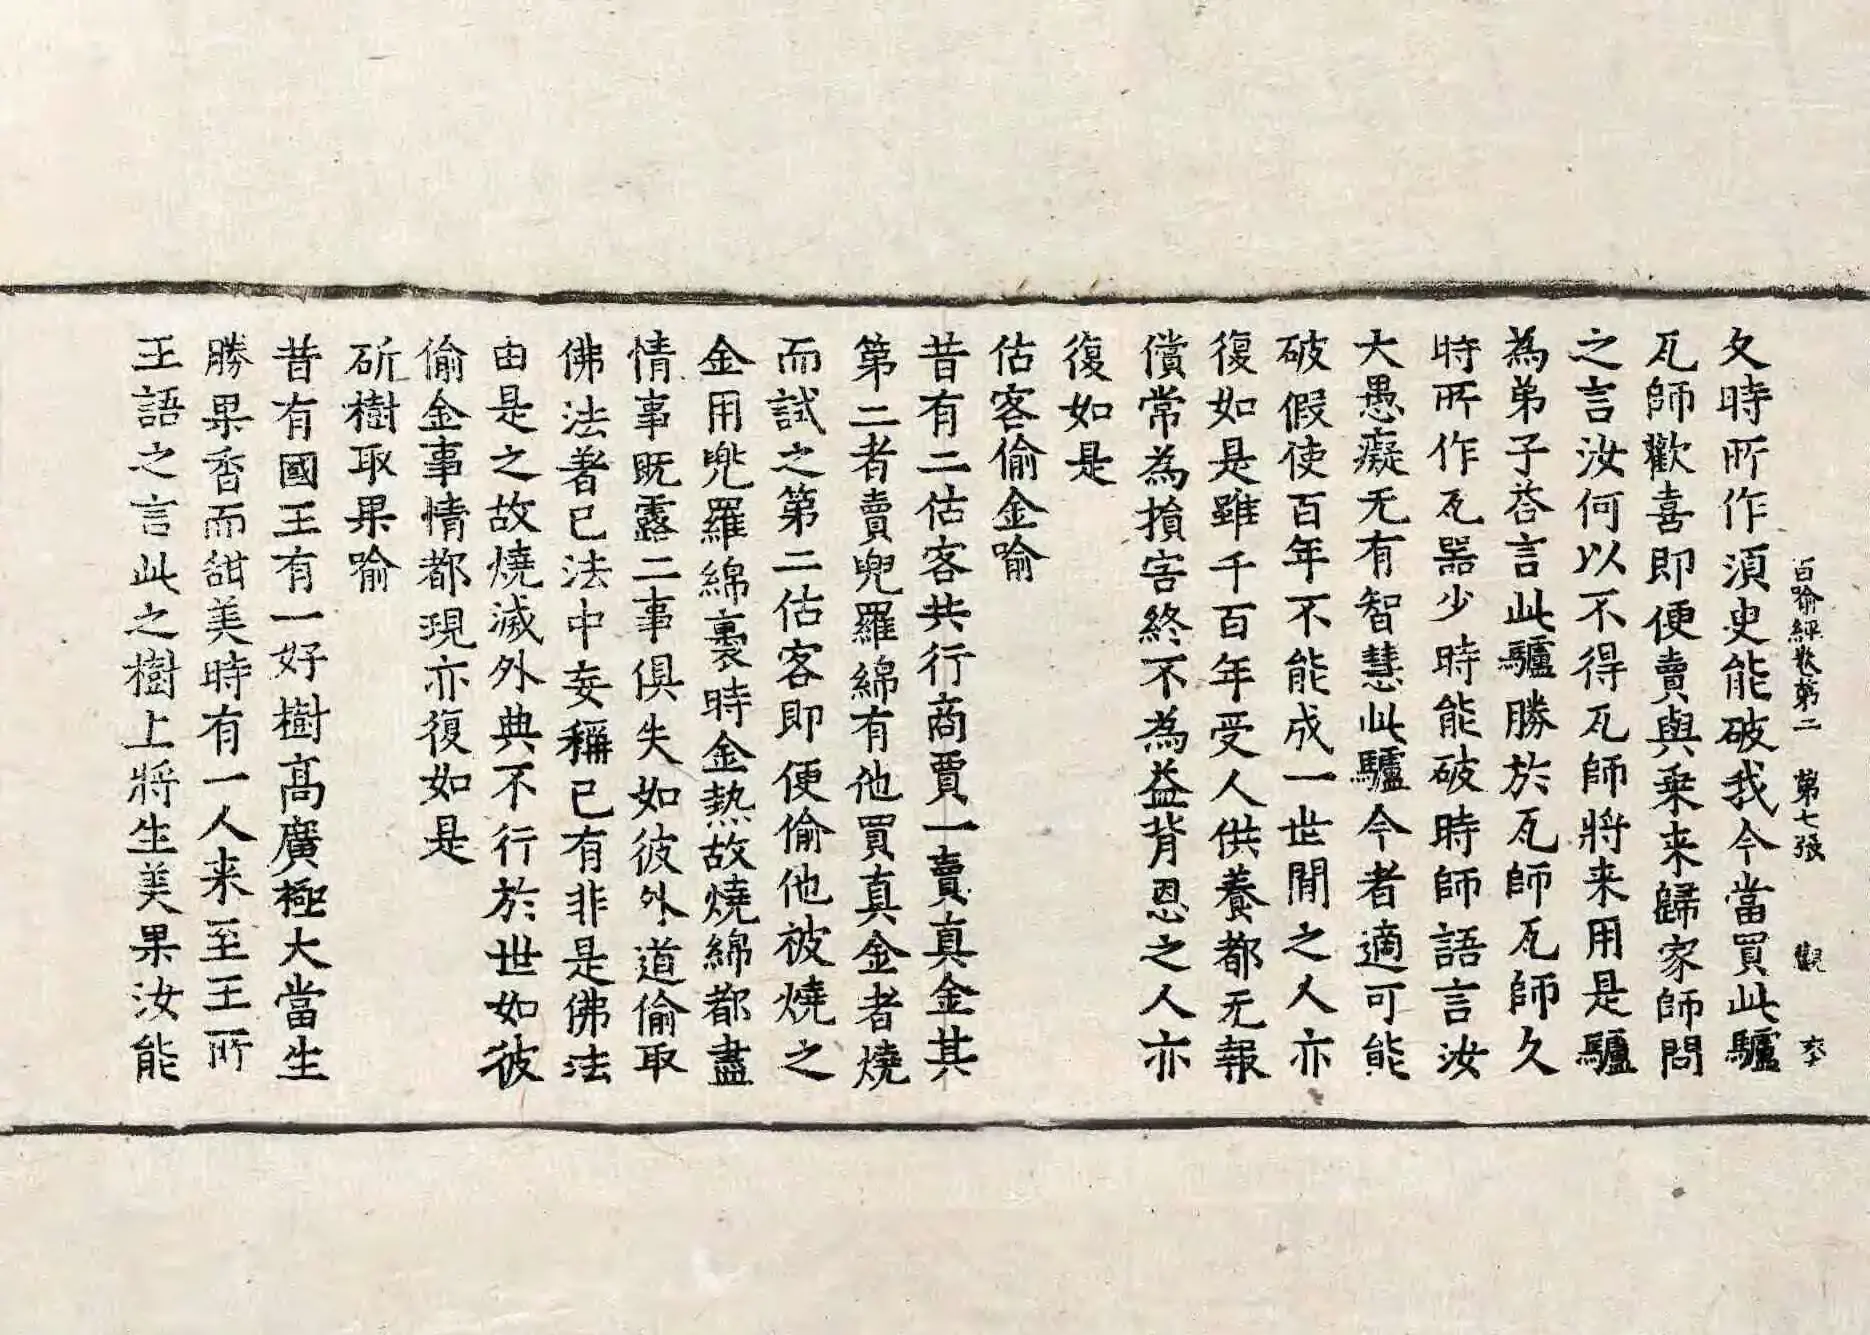 百喻經卷第二　第七張　觀
久時所作須臾能破我今當買此驢
瓦師歡喜即便賣與乗来歸家師問
之言汝何以不得瓦師將来用是驢
為弟子荅言此驢勝於瓦師瓦師久
時所作瓦器少時能破時師語言汝
大愚癡无有智慧此驢今者適可能
破假使百年不能成一世閒之人亦
復如是雖千百年受人供養都无報
償常為損害終不為益背恩之人亦
復如是
估客偷金喻
昔有二估客共行商賈一賣真金其
第二者賣兜羅綿有他買真金者燒
而試之第二估客即便偷他被燒之
金用兜羅綿裹時金熱故燒綿都盡
情事既露二事俱失如彼外道偷取
佛法著己法中妄稱己有非是佛法
由是之故燒滅外典不行於世如彼
偷金事情都現亦復如是
斫樹取果喻
昔有國王有一好樹高廣極大當生
勝果香而甜美時有一人来至王所
王語之言此之樹上將生美果汝能